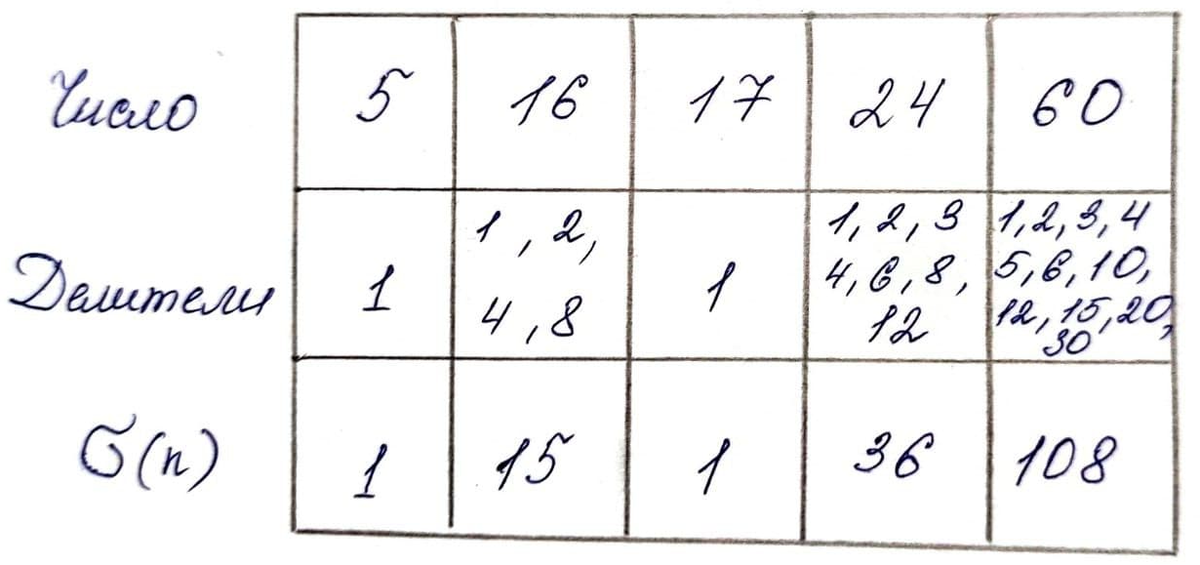 Число 5 16 17 24 60
Делители 1 1, 2, 4, 8 1 1, 2, 3 4, 6, 8, 12 1, 2, 3, 4 5, 6, 10, 12, 15, 20, 30
σ(n) 1 15 1 36 108